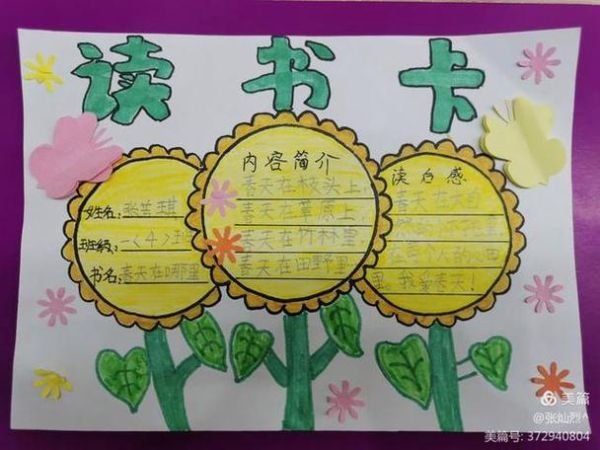 读书卡
姓名:
班级:一<4>班
书名:春天在哪里
内容简介
春天在枝头上,
春天在草原上,
春天在竹林里,
春天在田野里
读后感
春天在大自
在每个人的心田
里。我爱春天!
美篇
@张灿烈^
美篇号: 372940804